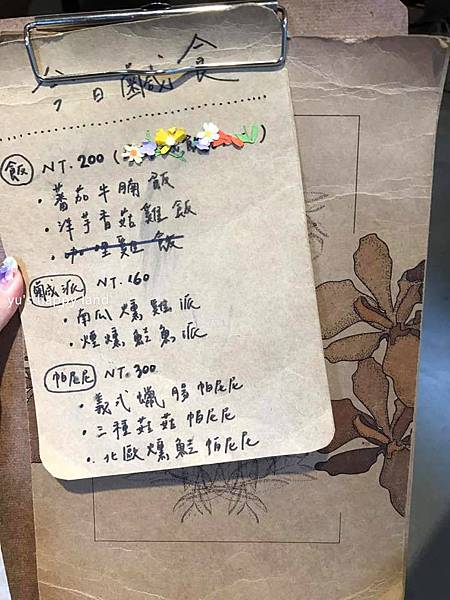 今日鹹食
飯 NT. 200 ( )
・蕃茄牛腩飯
・洋芋香菇雞飯
・咖哩雞飯
鹹派 NT. 160
yu's happy land
・南瓜燻雞派
・煙燻鮭魚派
帕尼尼 NT. 300
・義式臘腸帕尼尼
・三種菇菇帕尼尼
・北歐燻鮭帕尼尼